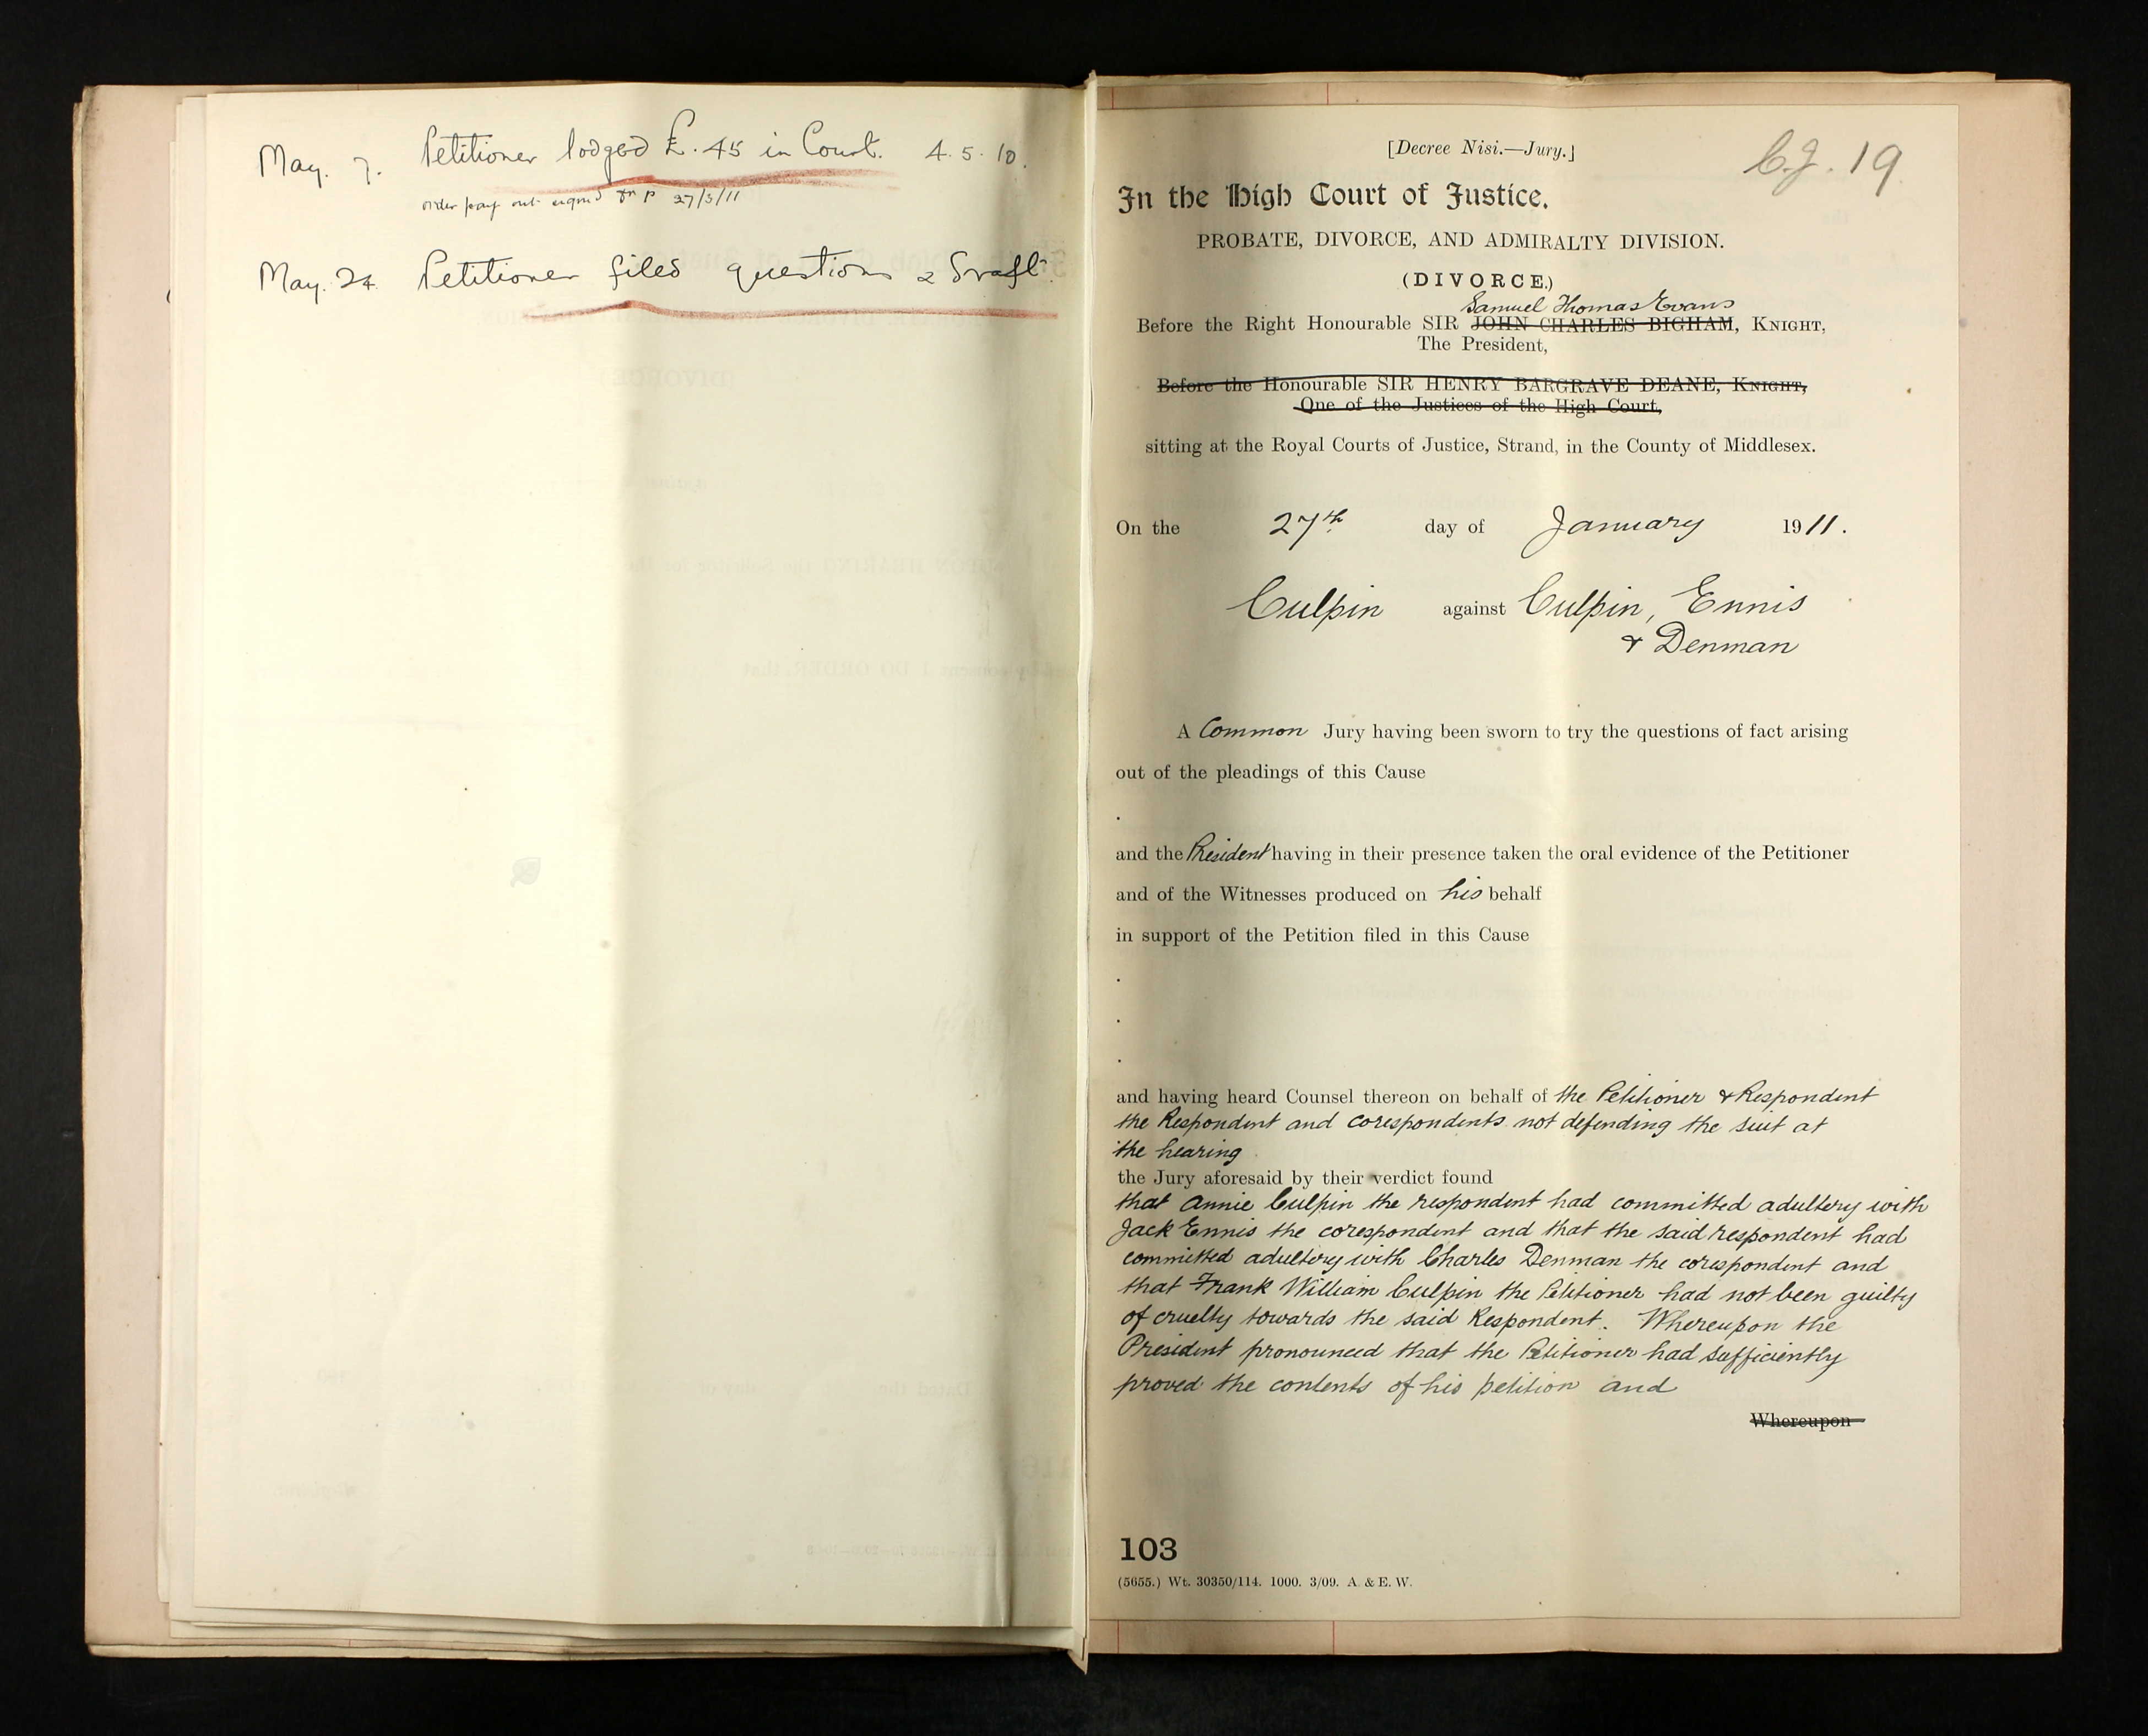 May. 7. Petitioner lodged £.45 in Court. 4.5.10.
order pay out signed 27/3/11
May. 24 Petitioner filed questions & Draft.
[Decree Nisi.—Jury.]
C.J. 19
In the High Court of Justice.
PROBATE, DIVORCE, AND ADMIRALTY DIVISION.
(DIVORCE.)
Samuel Thomas Evans
Before the Right Honourable SIR JOHN CHARLES BIGHAM, KNIGHT,
The President,
Before the Honourable SIR HENRY BARGRAVE DEANE, KNIGHT,
One of the Justices of the High Court,
sitting at the Royal Courts of Justice, Strand, in the County of Middlesex.
On the 27th day of January 1911.
Culpin against Culpin, Ennis
& Denman
A Common Jury having been sworn to try the questions of fact arising
out of the pleadings of this Cause
and the President having in their presence taken the oral evidence of the Petitioner
and of the Witnesses produced on his behalf
in support of the Petition filed in this Cause
and having heard Counsel thereon on behalf of the Petitioner & Respondent
the Respondent and corespondents not defending the suit at
the hearing
the Jury aforesaid by their verdict found
that Annie Culpin the respondent had committed adultery with
Jack Ennis the corespondent and that the said respondent had
committed adultery with Charles Denman the corespondent and
that Frank William Culpin the Petitioner had not been guilty
of cruelty towards the said Respondent. Whereupon the
President pronounced that the Petitioner had sufficiently
proved the contents of his petition and
Whereupon
103
(5655.) Wt. 30350/114. 1000. 3/09. A. & E. W.